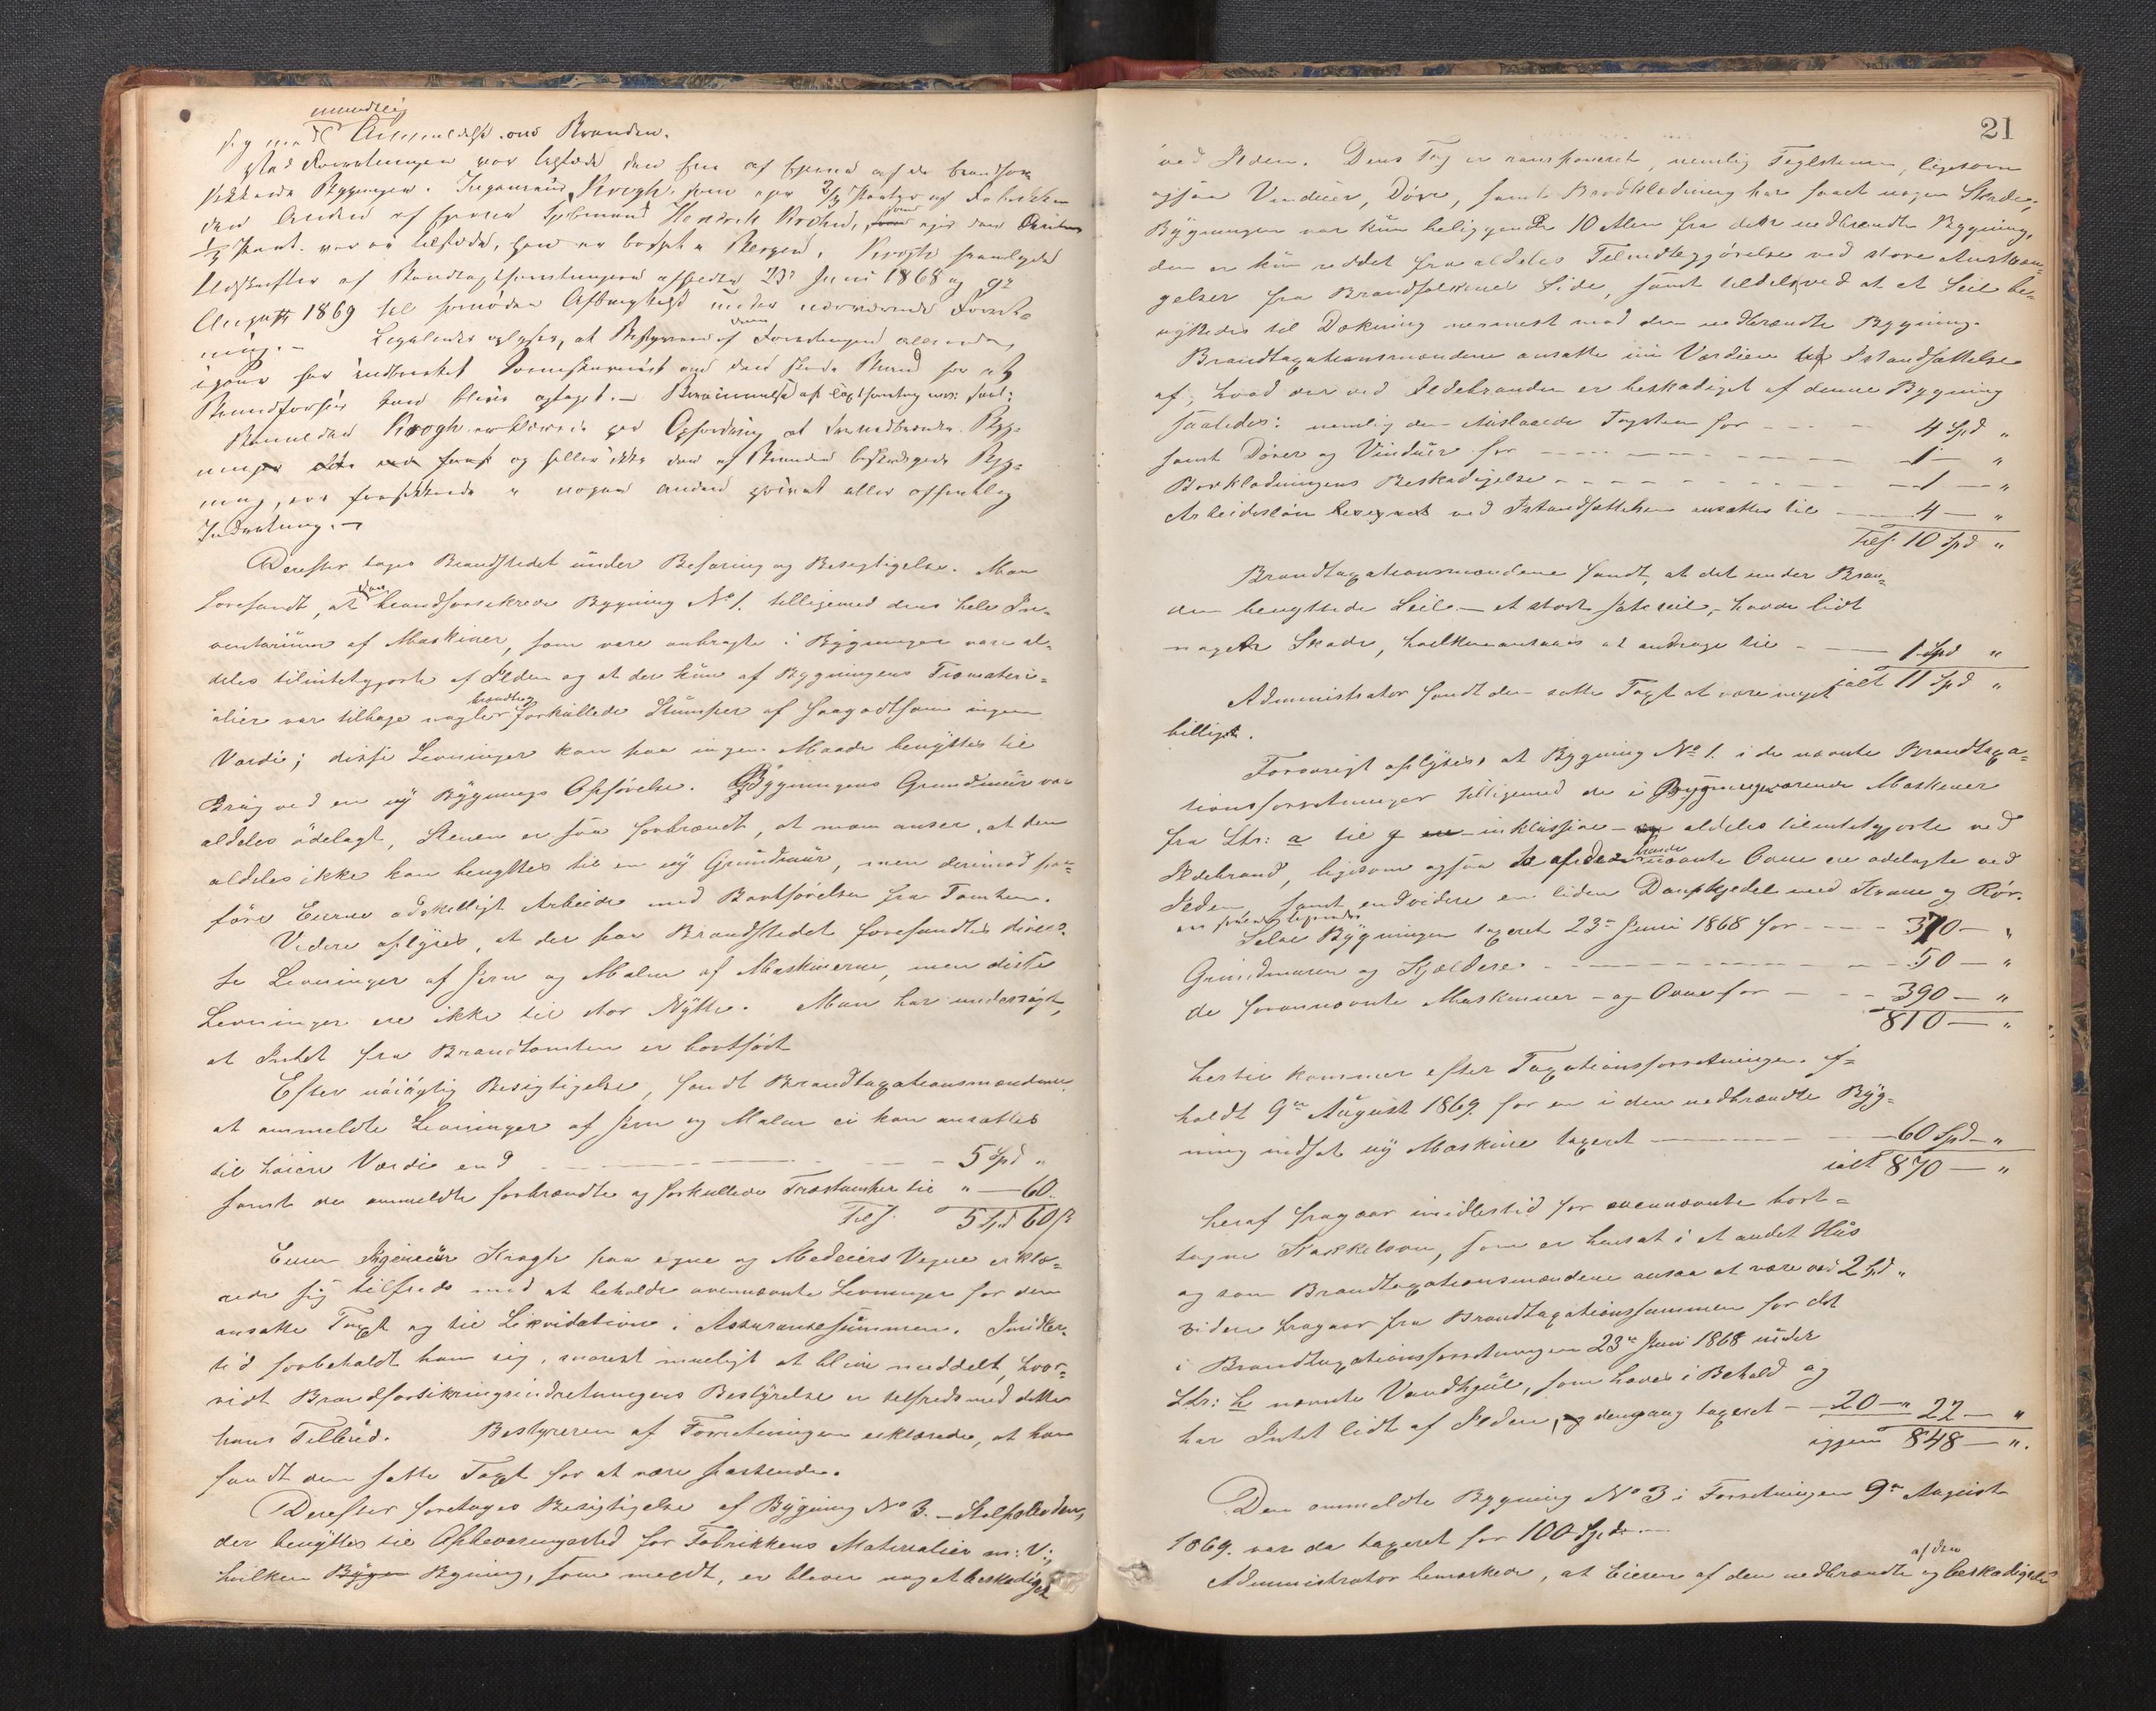 mundtlig
sig med Anmeldelse om Branden.
Ved Forretningen var tilstede den Ene af Eierne af de brandfor-
sikkrede Bygninger. Ingeniør Krogh, som eier 2/3 Parter af Fabrikken
den Anden af Eierne Kjøbmand Hendrik som eier den
1/3 Part var ei tilstede, han er bosat i Bergen. Krogh fremlagde
Udskrifter af Brandtaxtforretningerne afholdte 23de Juni 1868 og 9de
August 1869 til fornøden Afbenyttelse under nærværende Forret-
ning. - Ligeledes oplyses, at Bestyreren af Forretningen allerede
igaar har Brand for at
Brandforhør kan blive optaget. -
Anmelderen Krogh erklærede paa Opfordring at de nedbrændte Byg-
ninger og heller ikke den af Branden beskadigede Byg-
ning, var forsikkrede i nogen anden privat eller offentlig
Indretning. -
Derefter toges Brandstedet under Befaring og Besigtigelse. Man
forefandt, at den brandforsikrede Bygning No 1. tilligemed dens hele In-
ventarium af Maskiner, som vare anbragte i Bygningen vare al-
deles tilintetgjorte af Ilden og at der kun af Bygningens Træmateri-
alier var tilbage nogle brændte forkullede Stumper af saagodtsom ingen
Værdi; disse Levninger kan paa ingen Maade benyttes til
Brug ved en ny Bygnings Opførelse. Bygningens Grundmuur var
aldeles ödelagt, Stenen er saa forbrændt, at man anser, at den
aldeles ikke kan benyttes til en ny Grundmuur, men derimod for-
före Eierne adskilligt Arbeide med Bortførelsen fra Tomten.
Videre oplyses, at der paa Brandstedet forefandtes diver-
se Levninger af Jern og Malm af Maskinerne, men disse
Levninger ere ikke til stor Nytte. Man har undersøgt,
at Intet fra Brandtomten er bortfört
Efter nöiagtig Besigtigelse, fandt Brandtaxationsmændene
at ommeldte Levninger af Jern og Malm ei kan ansættes
til höiere Værdi end - - - 5 Spd "
samt de ommeldte forbrændte og forkullede Træstumper til " - 60.
Tils. 5 Spd 60 ß
Eieren Ingeniør Krogh paa egne og Medeiers Vegne erklæ-
rede sig tilfreds med at beholde ovennævnte Levninger for den
ansatte Taxt og til Likvidation i Assurancesummen. Imidler-
tid forbeholdt han sig, snarest mueligt at blive meddelt, hvor-
vidt Brandforsikringsindretningens Bestyrelse er tilfreds med dette
hans Tilbud. Bestyreren af Forretningen erklærede, at han
fandt den satte Taxt for at være passende.
Derefter foretoges Besigtigelse af Bygning No 3. -
der benyttes til Opbevaringssted for Fabrikkens Materialier m: V:,
hvilken Bygning, som meldt, er bleven noget beskadiget
21
ved Ilden. Dens Tag er ramponeret, nemlig Teglstenen, ligesom
ogsaa Vinduer, Döre, samt Bordklædning har faaet nogen Skade;
Bygningen var kun beliggende 10 Alen fra den nedbrændte Bygning,
den er kun reddet fra aldeles Tilintetgjörelse ved store Anstræn-
gelser fra Brandfolkenes Side, samt tildels ved at et Seil be-
nyttedes til Dækning nærmest mod den nedbrændte Bygning.
Brandtaxationsmændene ansatte nu Værdien ved Istandsættelse
af, hvad der ved Ildebranden er beskadiget af denne Bygning
saaledes: nemlig den itu slaaede Tagsten for - - - 4 Spd "
samt Dörer og Vinduer for - - - 1 - "
Bordklædningens Beskadigelse - - - 1 - "
Arbeidslön ved Istandsættelsen ansattes til - 4 - "
Tils. 10 Spd "
Brandtaxationsmændene fandt, at det under Bran-
den benyttede Seil - et stort - havde lidt
noget Skade, hvilken ansaaes at andrage til - 1 Spd "
ialt 11 Spd "
Administrator fandt den satte Taxt at være meget
billigt.
Forövrigt oplyses, at Bygning No 1. i de nævnte Brandtaxa-
tionsforretninger tilligemed de i Bygningen værende Maskiner
fra Ltr: a til g inklusive - aldeles tilintetgjorte ved
Ildebrand, ligesom ogsaa to af de nævnte Ovne ere ödelagte ved
Ilden, samt endvidere en liden Dampkjedel med Krane og Rör.
Selve Bygningen taxeret 23de Juni 1868 for - - - 370 - "
Grundmuren og Kjældere - - - 50 - "
de forannævnte Maskiner - og Ovne for - - - 390 - "
810 - "
hertil kommer efter Taxationsforretningen af-
holdt 9de August 1869 for en i den nedbrændte Byg-
ning indsat ny Maskine taxeret - - - 60 Spd - "
ialt 870 - "
heraf fragaar imidlertid for ovennævnte bort-
tagne Kakkelovn, som er hensat i et andet Hus
og som Brandtaxationsmændene ansaa at være værd 2 Spd "
videre fragaar fra Brandtaxationssummen for det
i Brandtaxationsforretningen 23de Juni 1868 under
Ltr: h nævnte Vandhjul, som haves i Behold og
har Intet lidt af Ilden, og dengang taxeret - - 20 - " 22 - "
igjen 848 - ".
Den ommeldte Bygning No 3 i Forretningen 9de August
1869. var da taxeret for 100 Spd. -
Administrator bemærkede, at Eieren af den nedbrændte og af den beskadigede